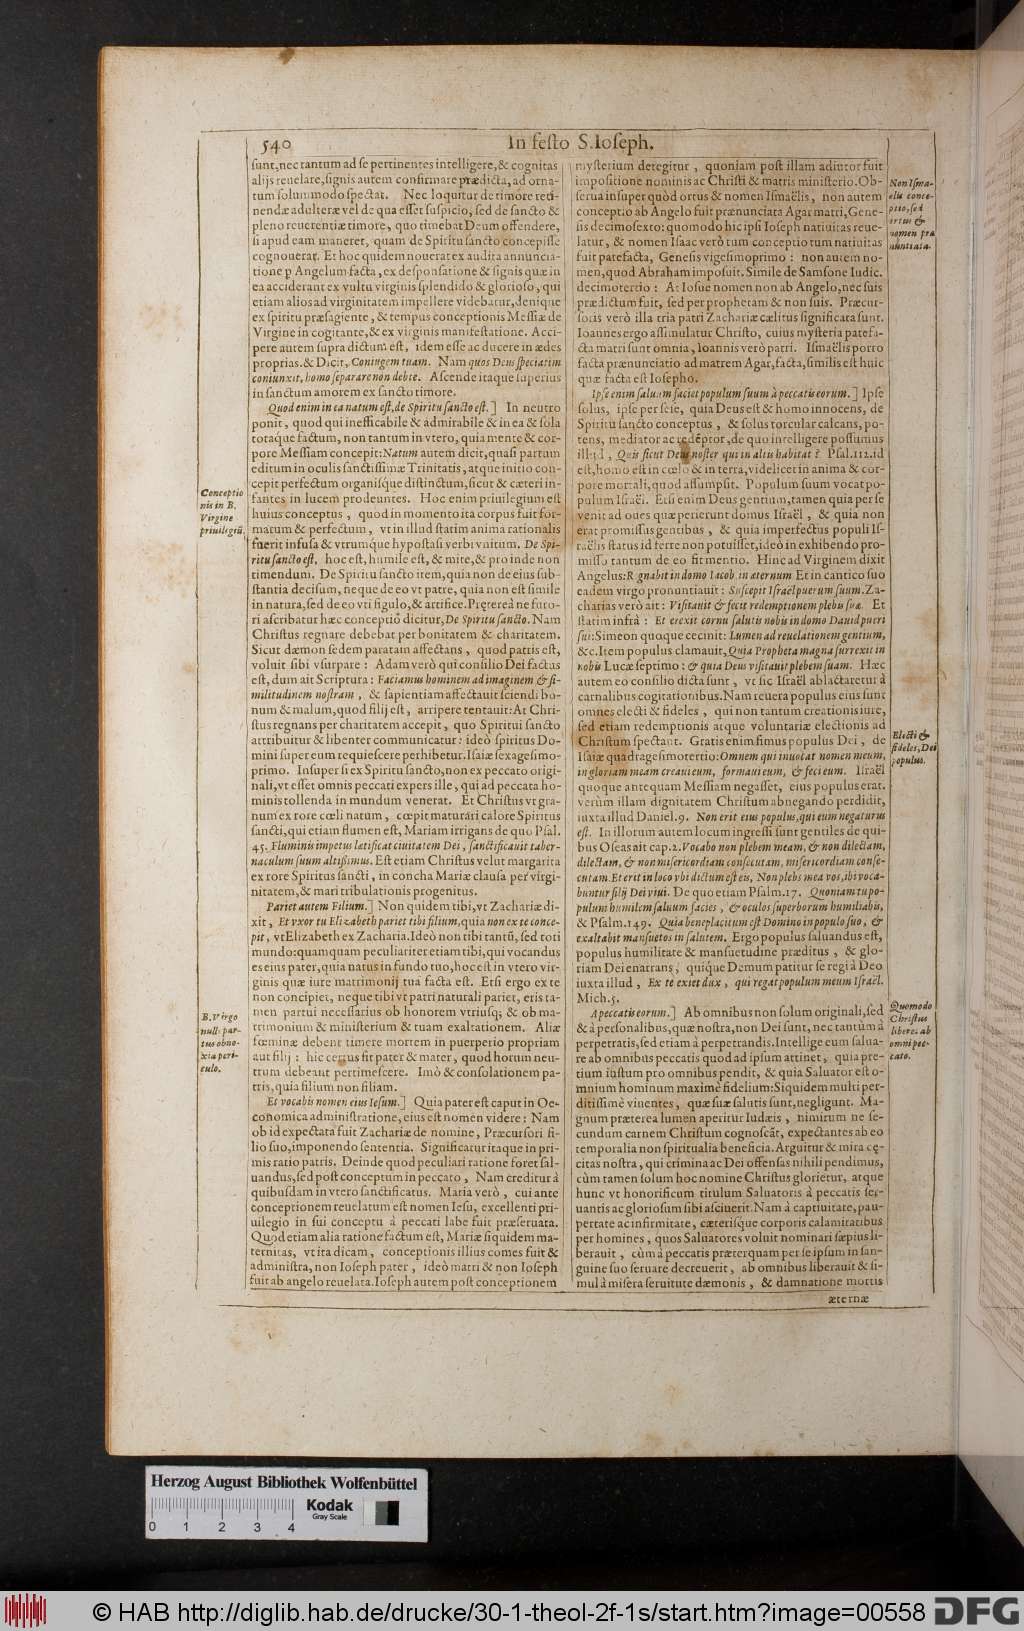 540
In festo S. Ioseph.
sunt, nec tantum ad se pertinentes intelligere, & cognitas
alijs reuelare, signis autem confirmare prædicta, ad orna-
tum solummodo spectat. Nec loquitur de timore reti-
nendæ adulteræ vel de qua esset suspicio, sed de sancto &
pleno reuerentiæ timore, quo timebat Deum offendere,
si apud eam maneret, quam de Spiritu sancto concepisse
cognouerat. Et hoc quidem nouerat ex audita annuncia-
tione p Angelum facta, ex desponsatione & signis quæ in
ea acciderant ex vultu virginis splendido & glorioso, qui
etiam alios ad virginitatem impellere videbatur, denique
ex spiritu præsagiente, & tempus conceptionis Messiæ de
Virgine in cogitante, & ex virginis manifestatione. Acci-
pere autem supra dictum est, idem esse ac ducere in ædes
proprias. & Dicit, Coniugem tuam. Nam quos Deus speciatim
coniunxit, homo separare non debet. Ascende itaque superius
in sanctum amorem ex sancto timore.
Quod enim in ea natum est, de Spiritu sancto est.] In neutro
ponit, quod qui inefficabile & admirabile & in ea & sola
totaque factum, non tantum in vtero, quia mente & cor-
pore Messiam concepit: Natum autem dicit, quasi partum
editum in oculis sanctissimæ Trinitatis, atque initio con-
cepit perfectum organisque distinctum, sicut & cæteri in-
fantes in lucem prodeuntes. Hoc enim priuilegium est
huius conceptus, quod in momento ita corpus fuit for-
matum & perfectum, vt in illud statim anima rationalis
fuerit infusa & vtrumque hypostasi verbi vnitum. De Spi-
ritu sancto est, hoc est, humile est, & mite, & proinde non
timendum. De Spiritu sancto item, quia non de eius sub-
stantia decisum, neque de eo vt patre, quia non est simile
in natura, sed de eo vti figulo, & artifice. Prętereà ne futo-
ri ascribatur hæc conceptio dicitur, De Spiritu sancto. Nam
Christus regnare debebat per bonitatem & charitatem.
Sicut dæmon sedem paratam affectans, quod patris est,
voluit sibi vsurpare: Adam verò qui consilio Dei factus
est, dum ait Scriptura: Faciamus hominem ad imaginem & si-
militudinem nostram, & sapientiam affectauit sciendi bo-
num & malum, quod filij est, arripere tentauit: At Chri-
stus regnans per charitatem accepit, quo Spiritui sancto
attribuitur & libenter communicatur: ideò spiritus Do-
mini super eum requiescere perhibetur. Isaiæ sexagesimo-
primo. Insuper si ex Spiritu sancto, non ex peccato origi-
nali, vt esset omnis peccati expers ille, qui ad peccata ho-
minis tollenda in mundum venerat. Et Christus vt gra-
num ex rore cœli natum, cœpit maturari calore Spiritus
sancti, qui etiam flumen est, Mariam irrigans de quo Psal.
45. Fluminis impetus latificat ciuitatem Dei, sanctificauit taber-
naculum suum altissimus. Est etiam Christus velut margarita
ex rore Spiritus sancti, in concha Mariæ clausa per virgi-
nitatem, & mari tribulationis progenitus.
Pariet autem Filium.] Non quidem tibi, vt Zachariæ di-
xit, Et vxor tu Elizabeth pariet tibi filium, quia non ex te conce-
pit, vt Elizabeth ex Zacharia. Ideò non tibi tantū, sed toti
mundo: quamquam peculiariter etiam tibi, qui vocandus
es eius pater, quia natus in fundo tuo, hoc est in vtero vir-
ginis quæ iure matrimonij tua facta est. Etsi ergo ex te
non concipiet, neque tibi vt patri naturali pariet, eris ta-
men partui necessarius ob honorem vtriusq; & ob ma-
trimonium & ministerium & tuam exaltationem. Aliæ
fœminæ debent timere mortem in puerperio propriam
aut filij: hic certus sit pater & mater, quod horum neu-
trum debeant pertimescere. Imò & consolationem pa-
tris, quia filium non filiam.
Et vocabis nomen eius Iesum.] Quia pater est caput in Oe-
conomica administratione, eius est nomen videre: Nam
ob id expectata fuit Zachariæ de nomine, Præcursori fi-
lio suo, imponendo sententia. Significatur itaque in pri-
mis ratio patris. Deinde quod peculiari ratione foret sal-
uandus, sed post conceptum in peccato, Nam creditur à
quibusdam in vtero sanctificatus. Maria verò, cui ante
conceptionem reuelatum est nomen Iesu, excellenti pri-
uilegio in sui conceptu à peccati labe fuit præseruata.
Quod etiam alia ratione factum est, Mariæ siquidem ma-
ternitas, vt ita dicam, conceptionis illius comes fuit &
administra, non Ioseph pater, ideò matri & non Ioseph
fuit ab angelo reuelata. Ioseph autem post conceptionem
Conceptio
nis in B.
Virgine
priuilegiū.
B. Virgo
nulli par-
tus obno-
xia peri-
culo.
mysterium detegitur, quoniam post illam adiutor fuit
impositione nominis ac Christi & matris ministerio. Ob-
serua insuper quòd ortus & nomen Ismaëlis, non autem
conceptio ab Angelo fuit prænunciata Agar matri, Gene-
sis decimosexto: quomodo hic ipsi Ioseph natiuitas reue-
latur, & nomen Isaac verò tum conceptio tum natiuitas
fuit patefacta, Genesis vigesimoprimo: non autem no-
men, quod Abraham imposuit. Simile de Samsone Iudic.
decimotertio: At Iosue nomen non ab Angelo, nec suis
prædictum fuit, sed per prophetam & non suis. Præcur-
soris verò illa tria patri Zachariæ cælitus significata sunt.
Ioannes ergo assimulatur Christo, cuius mysteria patefa-
cta matri sunt omnia, Ioannis verò patri. Ismaëlis porro
facta prænunciatio ad matrem Agar, facta, similis est huic
quæ facta est Iosepho.
Ipse enim saluum faciet populum suum à peccatis eorum.] Ipse
solus, ipse per sese, quia Deus est & homo innocens, de
Spiritu sancto conceptus, & solus torcular calcans, po-
tens, mediator ac redēptor, de quo intelligere possumus
illud, Quis sicut Deus noster qui in altis habitat? Psal. 112. id
est, homo est in cœlo & in terra, videlicet in anima & cor-
pore mortali, quod assumpsit. Populum suum vocat po-
pulum Israël. Etsi enim Deus gentium, tamen quia per se
venit ad oues quæ perierunt domus Israël, & quia non
erat promissus gentibus, & quia imperfectus populi Is-
raëlis status id ferre non potuisset, ideò in exhibendo pro-
misso tantum de eo fit mentio. Hinc ad Virginem dixit
Angelus: R gnabit in domo Iacob in æternum Et in cantico suo
eadem virgo pronuntiauit: Suscepit Israël puerum suum. Za-
charias verò ait: Visitauit & fecit redemptionem plebis suæ. Et
statim infrà: Et erexit cornu salutis nobis in domo Dauid pueri
sui: Simeon quoque cecinit: Lumen ad reuelationem gentium,
&c. Item populus clamauit, Quia Propheta magna surrexit in
nobis Lucæ septimo: & quia Deus visitauit plebem suam. Hæc
autem eo consilio dicta sunt, vt sic Israël ablactaretur à
carnalibus cogitationibus. Nam reuera populus eius sunt
omnes electi & fideles, qui non tantum creationis iure,
sed etiam redemptionis atque voluntariæ electionis ad
Christum spectant. Gratis enim simus populus Dei, de
Isaiæ quadragesimotertio: Omnem qui inuocat nomen meum,
in gloriam meam creaui eum, formaui eum, & feci eum. Israël
quoque antequam Messiam negasset, eius populus erat.
verùm illam dignitatem Christum abnegando perdidit,
iuxta illud Daniel. 9. Non erit eius populus, qui eum negaturus
est. In illorum autem locum ingressi sunt gentiles de qui-
bus Oseas ait cap. 2. Vocabo non plebem meam, & non dilectam,
dilectam, & non misericordiam consecutam, misericordiam conse-
cutam. Et erit in loco vbi dictum est eis, Non plebs mea vos, ibi voca-
buntur filij Dei viui. De quo etiam Psalm. 17. Quoniam tu po-
pulum humilem saluum facies, & oculos superborum humiliabis,
& Psalm. 149. Quia beneplacitum est Domino in populo suo, &
exaltabit mansuetos in salutem. Ergo populus saluandus est,
populus humilitate & mansuetudine præditus, & glo-
riam Dei enarrans, quique Demum patitur se regi à Deo
iuxta illud, Ex te exiet dux, qui regat populum meum Israël.
Mich. 5.
A peccatis eorum.] Ab omnibus non solum originali, sed
& à personalibus, quæ nostra, non Dei sunt, nec tantùm à
perpetratis, sed etiam à perpetrandis. Intellige eum salua-
re ab omnibus peccatis quod ad ipsum attinet, quia pre-
tium iustum pro omnibus pendit, & quia Saluator est o-
mnium hominum maximè fidelium: Siquidem multi per-
ditissimè viuentes, quæ suæ salutis sunt, negligunt. Ma-
gnum præterea lumen aperitur Iudæis, nimirum ne se-
cundum carnem Christum cognoscāt, expectantes ab eo
temporalia non spiritualia beneficia. Arguitur & mira cę-
citas nostra, qui crimina ac Dei offensas nihili pendimus,
cùm tamen solum hoc nomine Christus glorietur, atque
hunc vt honorificum titulum Saluatoris à peccatis ser-
uantis ac gloriosum sibi asciuerit. Nam à captiuitate, pau-
pertate ac infirmitate, cæterisque corporis calamitatibus
per homines, quos Saluatores voluit nominari sæpius li-
berauit, cùm à peccatis præterquam per se ipsum in san-
guine suo seruare decreuerit, ab omnibus liberauit & si-
mul à misera seruitute dæmonis, & damnatione mortis
æternæ
Non Isma-
elis conce-
ptio, sed
ortus &
nomen præ
nuntiata.
Electi &
fideles, Dei
populus.
Quomodo
Christus
liberet ab
omni pec-
cato.
Herzog August Bibliothek Wolfenbüttel
0 1 2 3 4
Kodak
Gray Scale
© HAB http://diglib.hab.de/drucke/30-1-theol-2f-1s/start.htm?image=00558
DFG